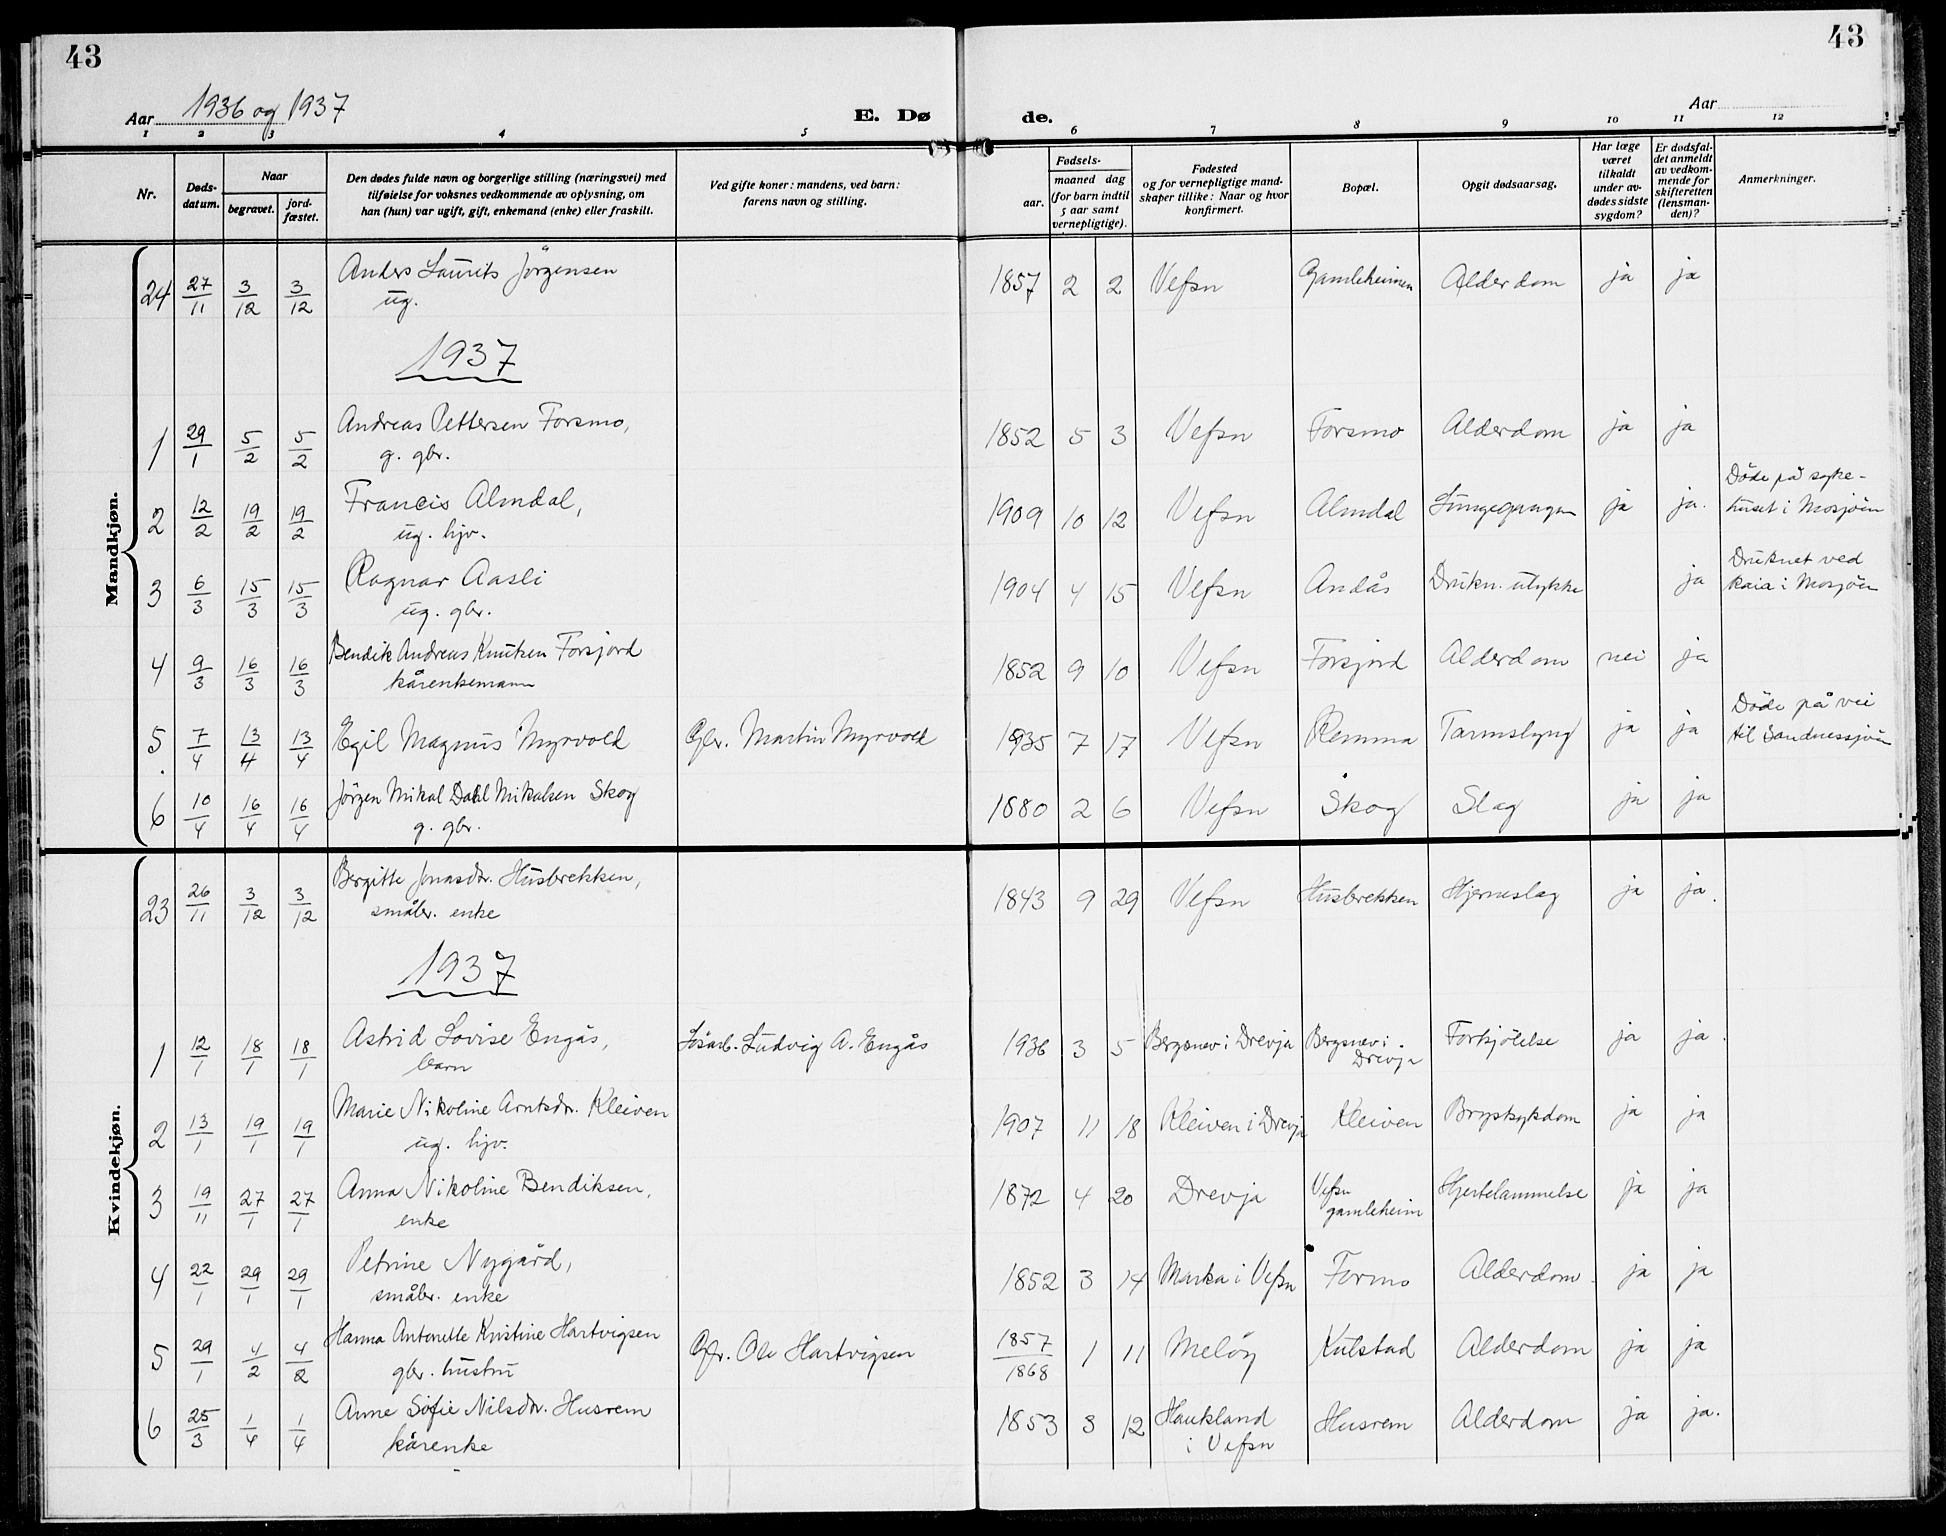 43
43
Aar 1936 og 1937
E. Dø
de.
Aar
1 2 3 4 5 6 7 8 9 10 11 12
Nr.
Døds-
datum.
Naar
begravet.
jord-
fæstet.
Den dødes fulde navn og borgerlige stilling (næringsvei) med
tilføielse for voksnes vedkommende av oplysning, om
han (hun) var ugift, gift, enkemand (enke) eller fraskilt.
Ved gifte koner: mandens, ved barn:
farens navn og stilling.
Fødsels-
aar.
maaned dag
(for barn indtil
5 aar samt
vernepligtige).
Fødested
og for vernepligtige mand-
skaper tillike: Naar og hvor
konfirmert.
Bopæl.
Opgit dødsaarsag.
Har læge
været
tilkaldt
under av-
dødes sidste
sygdom?
Er dødsfal-
det anmeldt
av vedkom-
mende for
skifteretten
(lensman-
den)?
Anmerkninger.
Mandkjøn.
24 27/11 3/12 3/12 Anders Laurits Jørgensen 1857 2 2 Vefsn Gamleheimen Alderdom ja ja
ug.
1937
1 29/1 5/2 5/2 Andreas Pettersen Forsmo, 1852 5 3 Vefsn Forsmo Alderdom ja ja
g. gbr.
2 12/2 19/2 19/2 Francis Almdal, 1909 10 12 Vefsn Almdal ja ja. Døde på syke-
ug. hjv. huset i Mosjøen
3 6/3 15/3 15/3 Ragnar Aasli 1904 4 15 Vefsn Andås Drukn. ulykke ja Druknet ved
ug. gbr. kaia i Mosjøen
4 9/3 16/3 16/3 Bendik Andreas Knutsen Forsjord 1852 9 10 Vefsn Forsjord Alderdom nei ja
kårenkemann
5. 7/4 13/4 13/4 Egil Magnus Myrvold Gbr. Martin Myrvold 1935 7 17 Vefsn Remma Tarmslyng ja ja Døde på vei
til Sandnessjøen
6 10/4 16/4 16/4 Jørgen Mikal Dahl Mikalsen Skog 1880 2 6 Vefsn Skog Slag ja ja
g. gbr.
Kvindekjøn.
23 26/11 3/12 3/12 Bergitte Jonasdtr. Husbrekken, 1843 9 29 Vefsn Husbrekken Hjerneslag ja ja.
småbr. enke
1937
1 12/1 18/1 18/1 Astrid Lovise Engås, Løsarb. Ludvig A. Engås 1936 3 5 Bergsnev i Drevja Bergsnev i Forkjølelse ja ja.
barn Drevja
2 13/1 19/1 19/1 Marie Nikoline Arntsdtr. Kleiven 1907 11 18 Kleiven i Drevja Kleiven Brystsykdom ja ja
ug. hjv.
3 19/11 27/1 27/1 Anna Nikoline Bendiksen, 1872 4 20 Drevja Vefsn Hjertelammelse ja ja
enke gamleheim
4 22/1 29/1 29/1 Petrine Nygård, 1852 3 14 Marka i Vefsn Formo Alderdom ja ja
småbr. enke
5 29/1 4/2 4/2 Hanna Antonette Kristine Hartvigsen Gbr. Ole Hartvigsen 1857/1868 1 11 Meløy Kulstad Alderdom ja ja
gbr. hustru
6 25/3 1/4 1/4 Anne Sofie Nilsdtr. Husrem 1853 3 12 Haukland Husrem Alderdom ja ja.
kårenke i Vefsn